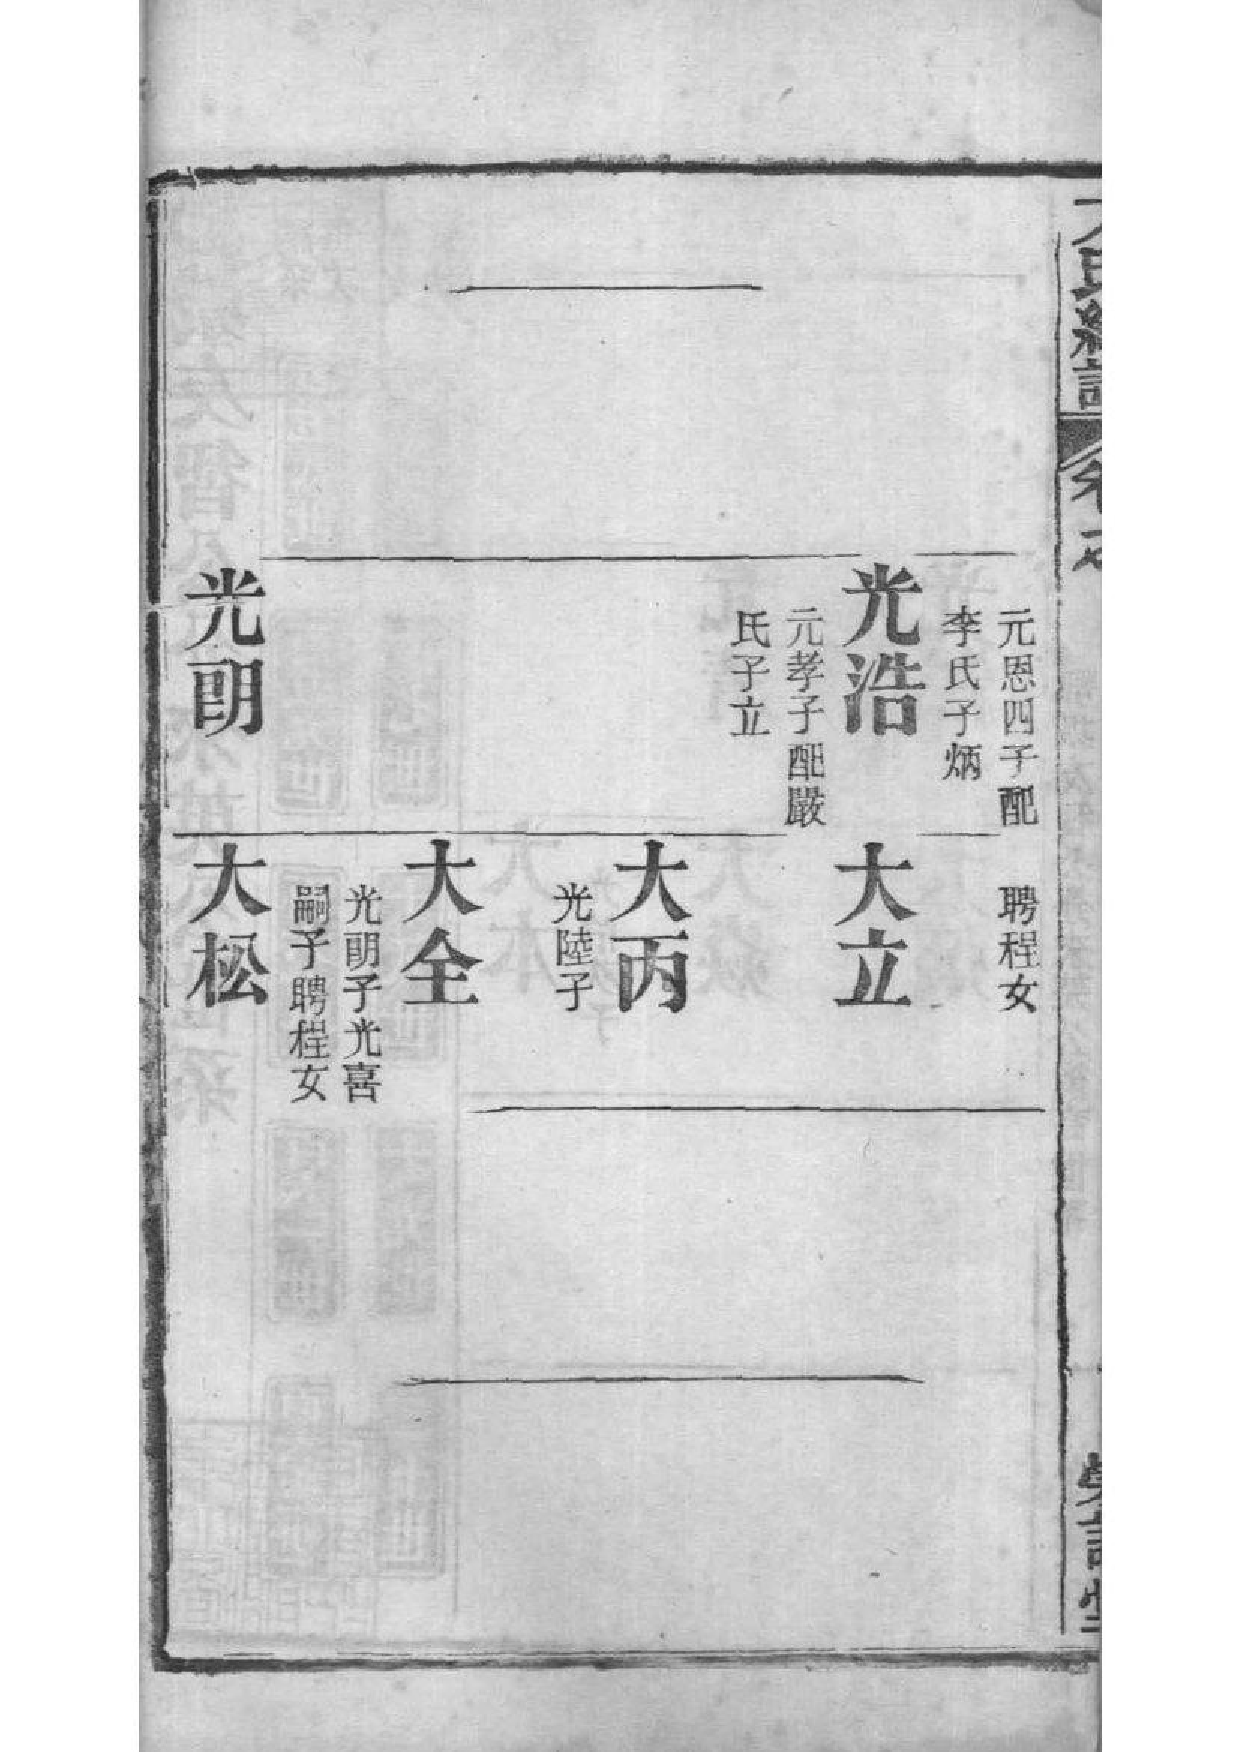 元恩四子配
李氏子炳
光浩
元孝子配嚴
氏子立
光明
聘程女
大立
大丙
光陸子
大全
光明子光喜
嗣子聘程女
大松